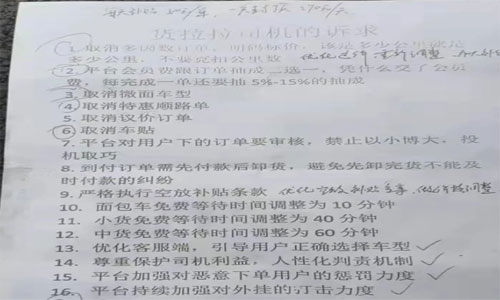 货拉拉司机的诉求
1.取消多因数订单，明码标价，该是多少公里就是
多少公里，不要克扣公里数
2.平台会员费跟订单抽成二选一，凭什么交了会员
费，每完成一单还要抽5%-15%的抽成
3.取消微面车型
4.取消特惠顺路单
5.取消议价订单
6.取消车贴
7.平台对用户下的订单要审核，禁止以小博大，投
机取巧
8.到付订单需先付款后卸货，避免先卸完货不能及
时付款的纠纷
9.严格执行空放补贴条款
10.面包车免费等待时间调整为10分钟
11.小货免费等待时间调整为40分钟
12.中货免费等待时间调整为60分钟
13.优化客服端，引导用户正确选择车型
14.尊重保护司机利益，人性化判责机制
15.平台加强对恶意下单用户的惩罚力度
16.平台持续加强对外挂的打击力度